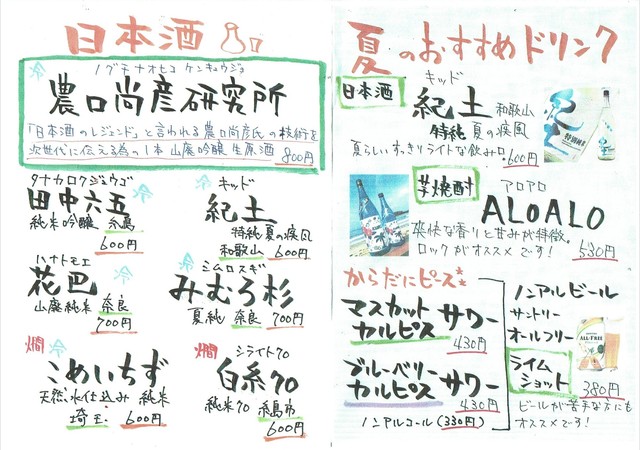 日本酒
冷
ノグチナオヒコ ケンキュウジョ
農口尚彦研究所
「日本酒のレジェンド」と言われる農口尚彦氏の技術を
次世代に伝える為の1本 山廃吟醸生原酒 800円
タナカロクジュウゴ 冷
田中六五
純米吟醸 糸島
600円
キッド 冷
紀土
特純 夏の疾風
和歌山 600円
ハナトモエ 冷
花巴
山廃純米 奈良
700円
ミムロスギ 冷
みむろ杉
夏純 奈良 700円
燗 冷
こめいちず
天然水仕込み 純米
埼玉 600円
燗 シライト70
白糸70
純米70 糸島市
600円
夏のおすすめドリンク
日本酒
キッド
紀土 和歌山
特純 夏の疾風
夏らしいすっきりライトな飲み口 600円
芋焼酎
アロアロ
ALOALO
爽快な香りと甘みが特徴。
ロックがオススメです! 530円
からだにピース
マスカット
カルピス サワー
430円
ブルーベリー
カルピス サワー
430円
ノンアルコール (330円)
ノンアルビール
サントリー
オールフリー
ALL-FREE
ライム
ショット
380円
ビールが苦手な方にも
オススメです!